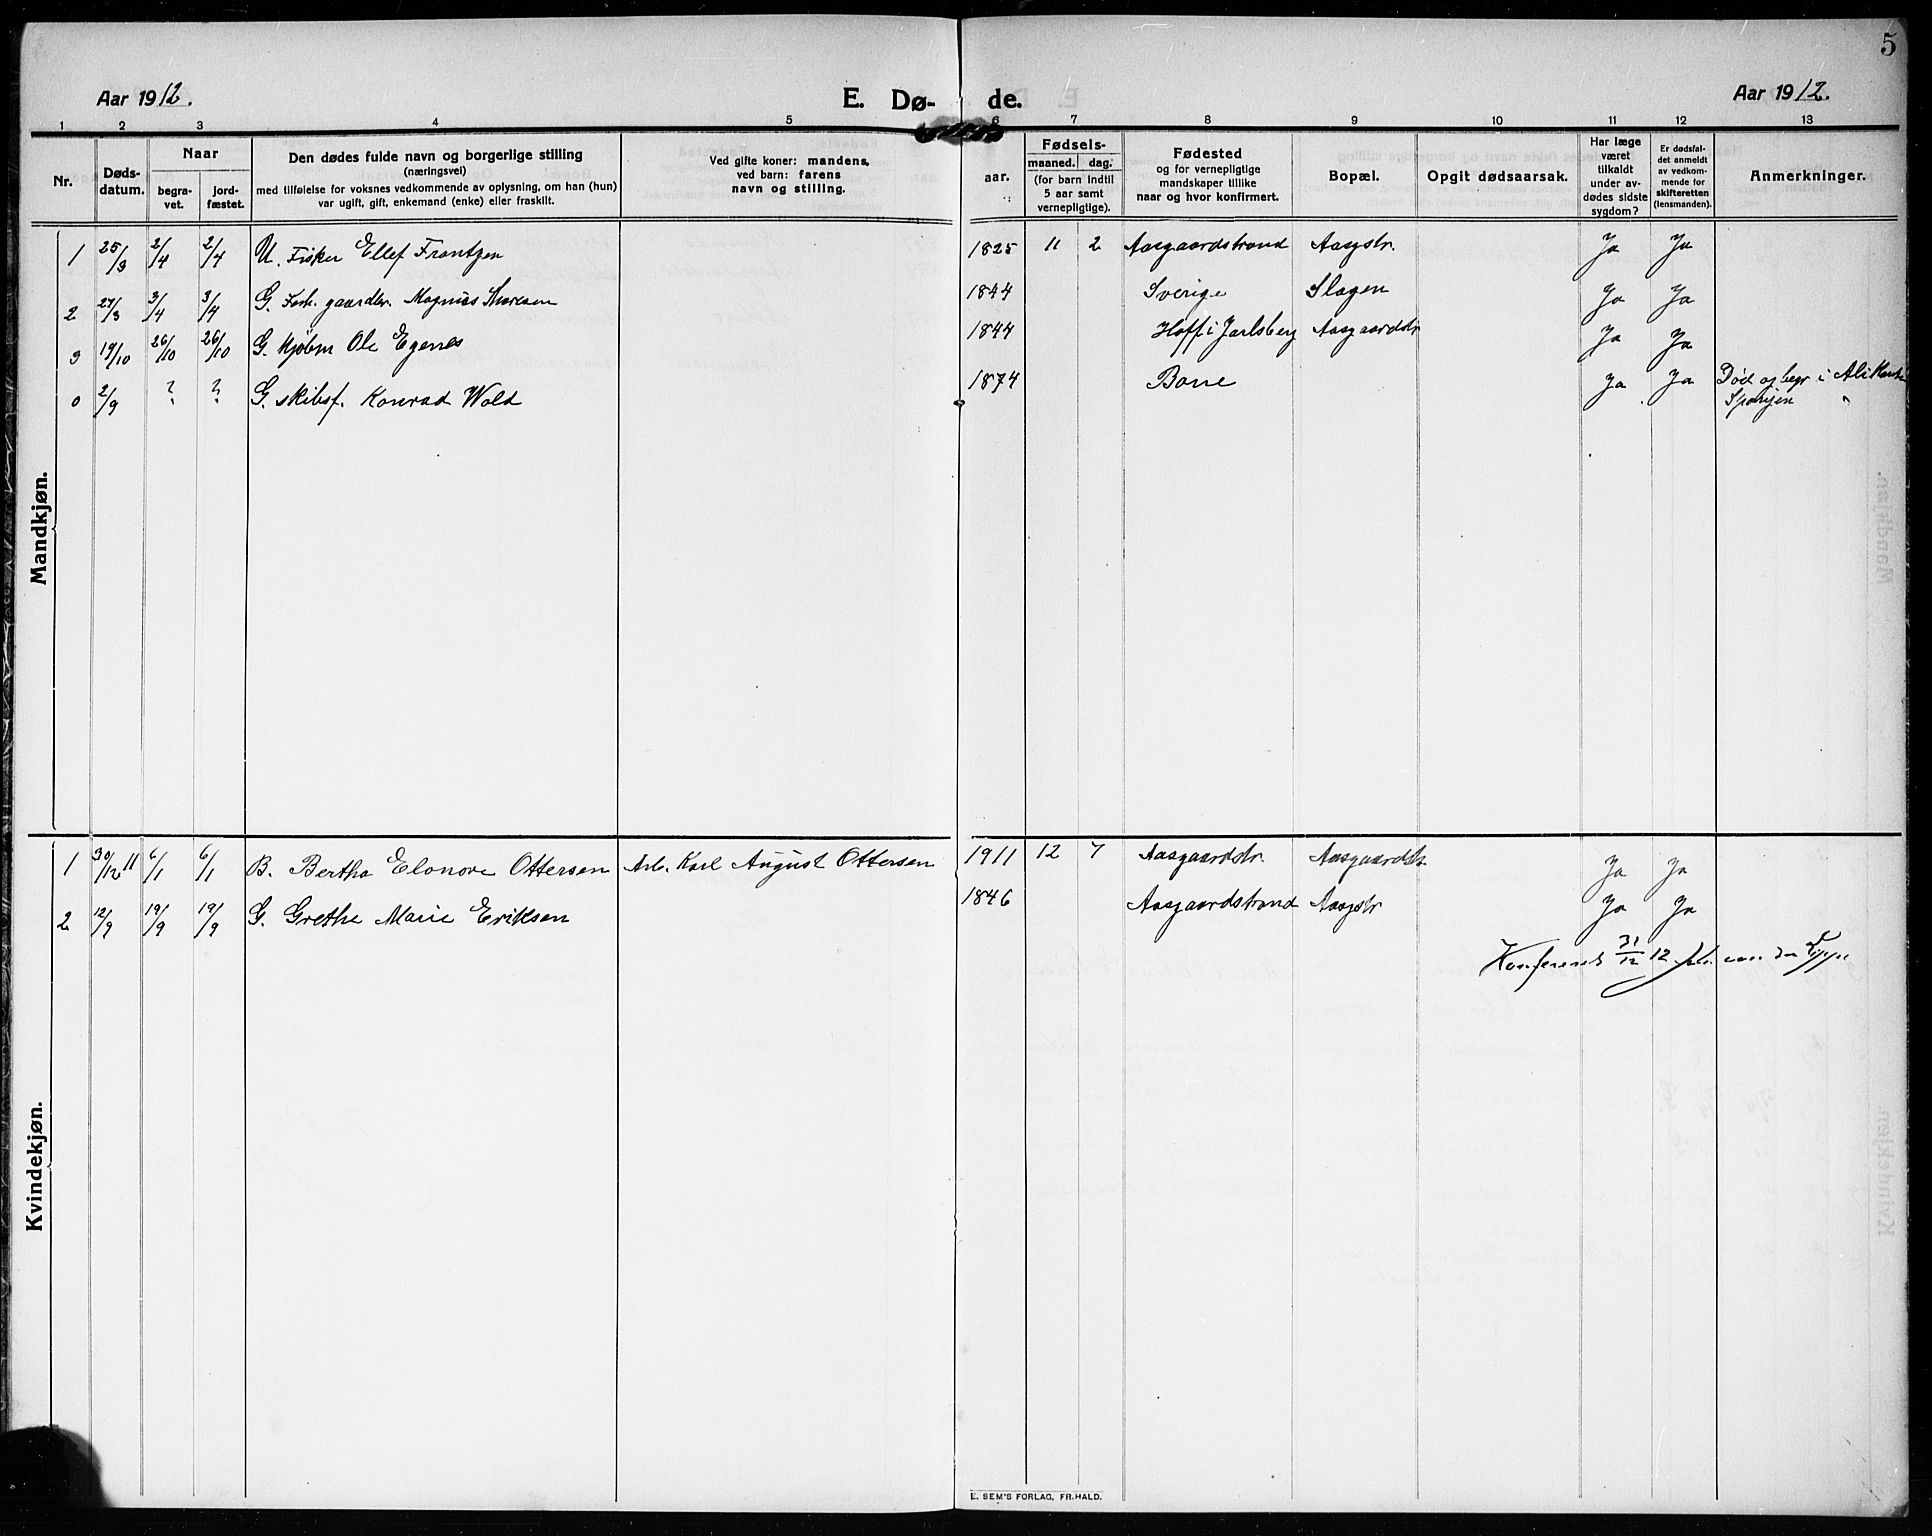 5
Aar 1912. E. Dø- de. Aar 1912.
1 2 3 4 5 6 7 8 9 10 11 12 13
Nr.
Døds-
datum.
Naar
begra-
vet.
jord-
fæstet.
Den dødes fulde navn og borgerlige stilling
(næringsvei)
med tilføielse for voksnes vedkommende av oplysning, om han (hun)
var ugift, gift, enkemand (enke) eller fraskilt.
Ved gifte koner: mandens,
ved barn: farens
navn og stilling.
Fødsels-
aar.
maaned.
dag.
(for barn indtil
5 aar samt
vernepligtige).
Fødested
og for vernepligtige
mandskaper tillike
naar og hvor konfirmert.
Bopæl.
Opgit dødsaarsak.
Har læge
været
tilkaldt
under av-
dødes sidste
sygdom?
Er dødsfal-
det anmeldt
av vedkom-
mende for
skifteretten
(lensmanden).
Anmerkninger.
Mandkjøn.
1 25/3 2/4 2/4 U. Fisker Ellef Frantzen 1825 11 2 Aasgaardstrand Aasgstr. Ja Ja
2 27/3 3/4 3/4 G. Forh. gaardbr. Magnus Thoresen 1844 Sverige Slagen Ja Ja
3 19/10 26/10 26/10 G. Kjøbm Ole Egenes 1844 Hoff i Jarlsberg Aasgaardstr Ja Ja
0 2/9 ? ? G. skibsf. Konrad Wold 1874 Borre Ja Ja Død og begr i Alikante
Spanjen "
Kvindekjøn.
1 30/12 11 6/1 6/1 B. Bertha Elonore Ottersen Arb. Karl August Ottersen 1911 12 7 Aasgaardstr. Aasgaardstr. Ja Ja
2 12/9 19/9 19/9 G. Grethe Marie Eriksen 1846 Aasgaardstrand Aasgstr Ja Ja
Konfereret 31/12 12 von der Lippe
E. SEM'S FORLAG, FR.HALD.